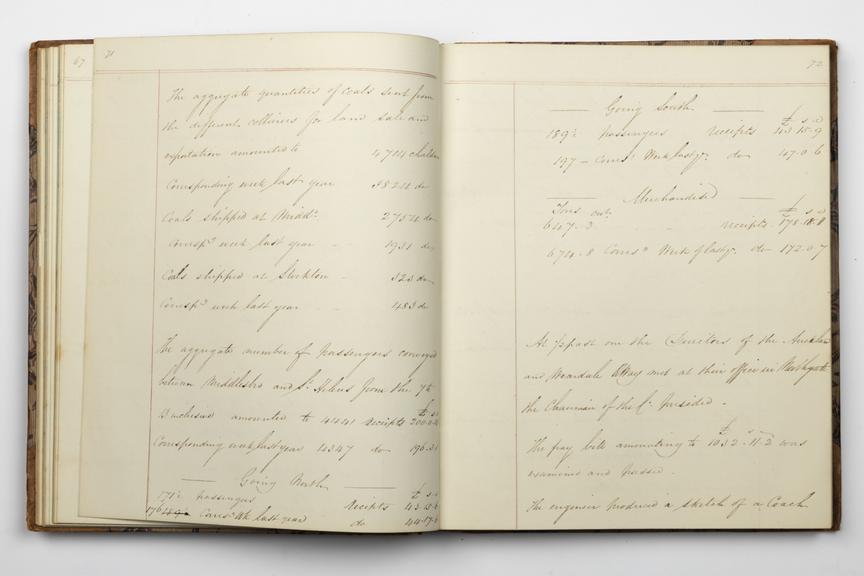 67
71
The aggregate quantities of Coals sent from
the different collieries for land sale and
exportation amounted to 4714 chaldn
Corresponding week last year 3824 do
Coals shipped at Middo 2754 do
Correspg week last year 1931 do
Coals shipped at Stockton 323 do
Correspg week last year 483 do
The aggregate number of Passengers conveyed
between Middlesbro and St Helens from the 7th
13 inclusive amounted to 4441 receipts 200.0
Corresponding week last year 4347 do 196.3
Going North
171½ passengers Receipts 43.15.6
176 Corresg Wk last year do 44.17.6
72
Going South
£ s d
189½ passengers receipts 43.15.9
197 - Corresg Week last yr do 47.0.6
Merchandise
£ s d
Tons cwt
647.3 receipts 178.18.8
674.8 Corresg Week of last yr. do 172.0.7
At ½ past one the Directors of the Auckland
and Weardale RWay met at their office in Northgate
the Chairman of the Co. presided.
The pay bill amounting to £1032.11.2 was
examined and passed.
The engineer produced a sketch of a Coach